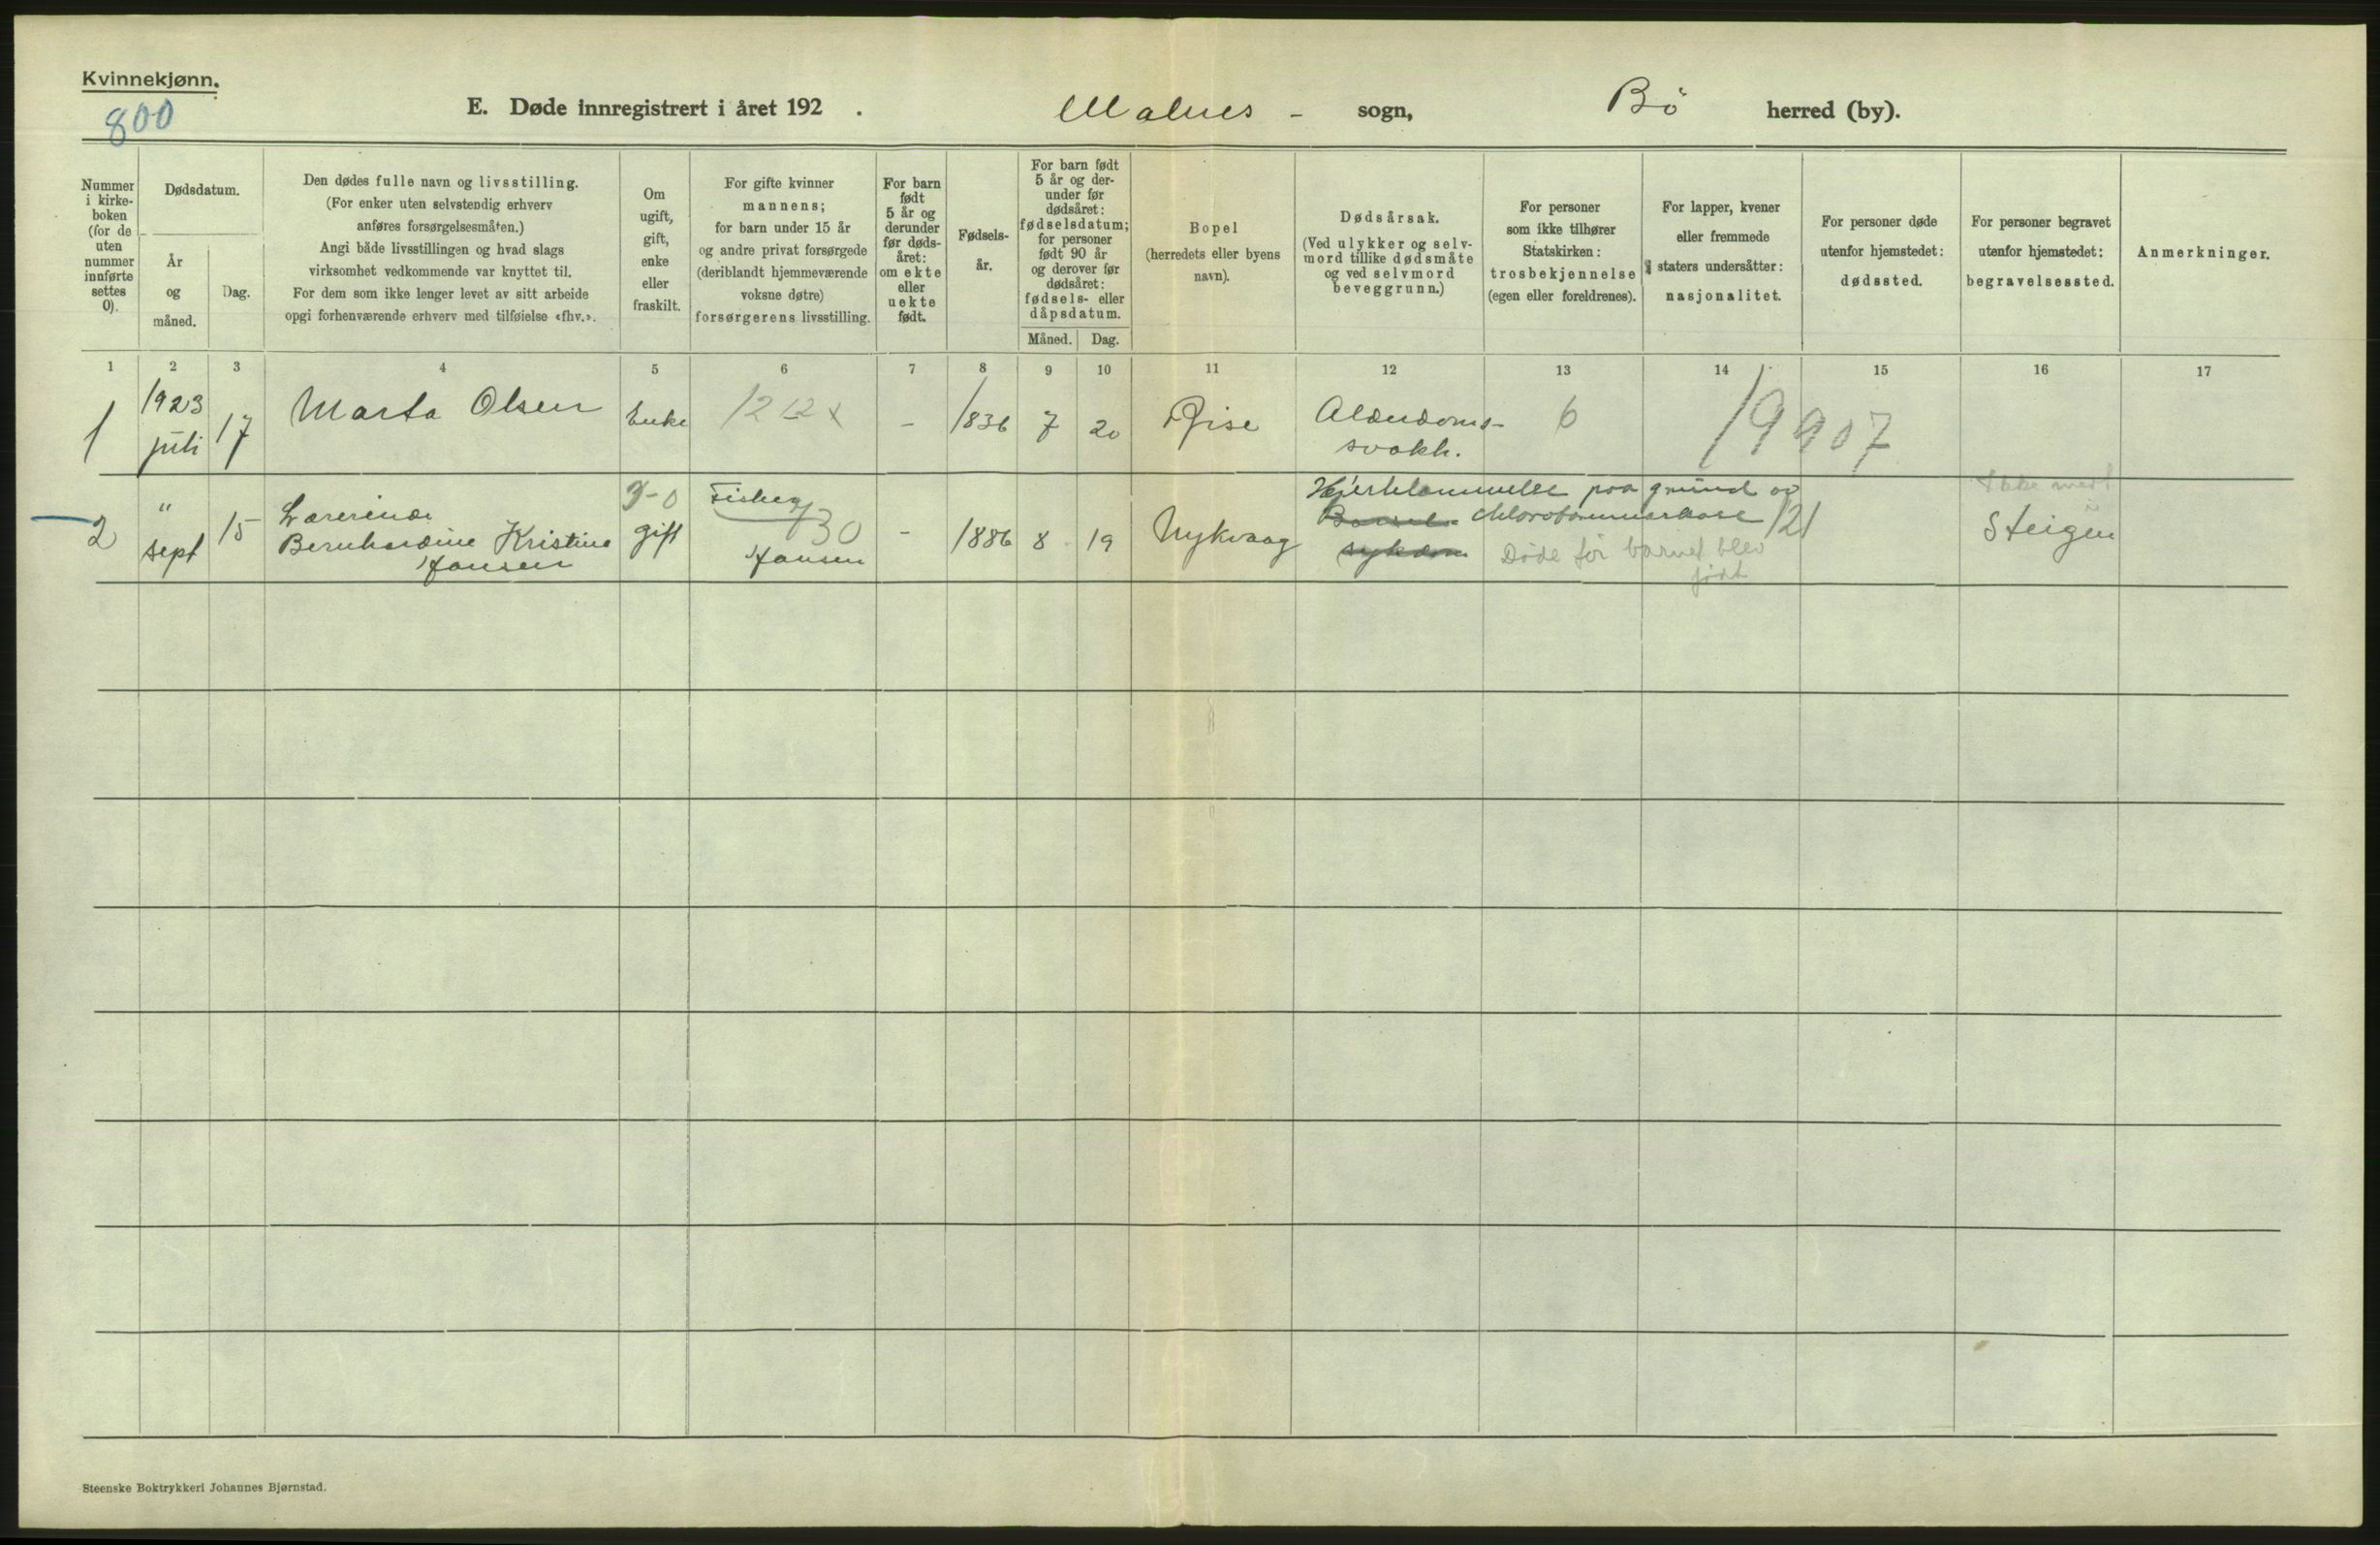 Kvinnekjønn.
800
E. Døde innregistrert i året 192 .
Malnes - sogn,
Bö herred (by).
Nummer i kirke- boken (for de uten nummer innførte settes 0).
Dødsdatum.
År og måned.
Dag.
Den dødes fulle navn og livsstilling.
(For enker uten selvstendig erhverv
anføres forsørgelsesmåten.)
Angi både livsstillingen og hvad slags
virksomhet vedkommende var knyttet til.
For dem som ikke lenger levet av sitt arbeide
opgi forhenværende erhverv med tilføielse «fhv.».
Om ugift, gift, enke eller fraskilt.
For gifte kvinner
mannens;
for barn under 15 år
og andre privat forsørgede
(deriblandt hjemmeværende
voksne døtre)
forsørgerens livsstilling.
For barn født 5 år og derunder før døds- året: om ekte eller uekte født.
Fødsels- år.
For barn født
5 år og der-
under før
dødsåret:
fødselsdatum;
for personer
født 90 år
og derover før
dødsåret:
fødsels- eller
dåpsdatum.
Måned. Dag.
Bopel
(herredets eller byens
navn).
Dødsårsak.
(Ved ulykker og selv-
mord tillike dødsmåte
og ved selvmord
beveggrunn.)
For personer
som ikke tilhører
Statskirken:
trosbekjennelse
(egen eller foreldrenes).
For lapper, kvener
eller fremmede
staters undersåtter:
nasjonalitet.
For personer døde
utenfor hjemstedet:
dødssted.
For personer begravet
utenfor hjemstedet:
begravelsessted.
Anmerkninger.
1 2 3 4 5 6 7 8 9 10 11 12 13 14 15 16 17
1 1923 juli 17 Marta Olsen Enke - 1836 7 20 Rise Alderdoms-
svakh. 6 19907
2 " sept 15 Lærerinde
Bernhardine Kristine
Hansen
gift Fisker
30
Hansen
- 1886 8 19 Nykvaag
Hjertelammelse paa grund av
Barsel- chlorofomnarkose 121
sykdom Døde før barnet blev
født
Steigen
Steenske Boktrykkeri Johannes Bjørnstad.